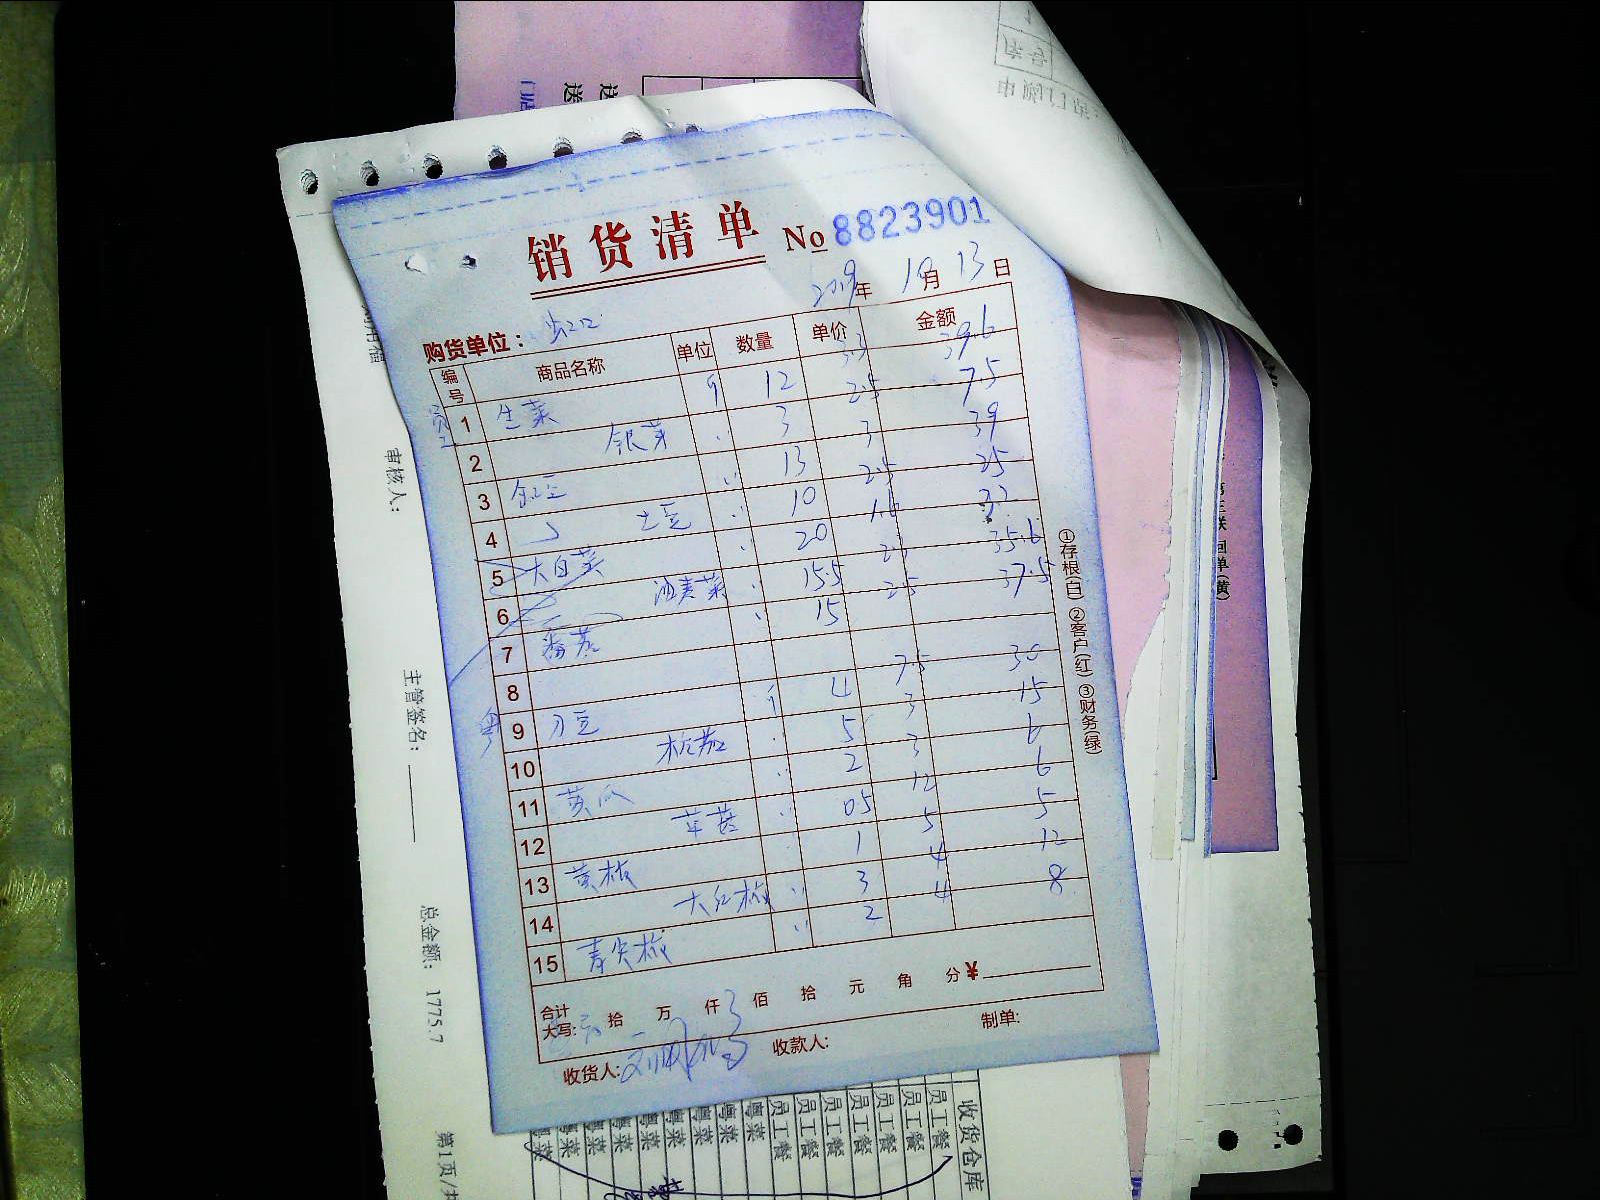 销货清单 No 8823901
2019年 10月 13日
购货单位: 虹口
编号 商品名称 单位 数量 单价 金额
员工
1 生菜 斤 12 3.3 39.6
2 银芽 〃 3 2.5 7.5
3 〃 13 3 39
4 土豆 〃 10 2.5 25
5 大白菜 〃 20 1.6 32
6 油麦菜 〃 15.5 2.3 35.6
7 番茄 〃 15 2.5 37.5
8
粤
9 刀豆 斤 4 7.5 30
10 杭茄 〃 5 3 15
11 黄瓜 〃 2 3 6
12 〃 05 12 6
13 黄椒 〃 1 5 5
14 大红椒 〃 3 4 12
15 青尖椒 〃 2 4 8
合计
大写: 拾 万 仟 佰 拾 元 角 分 ¥
收货人: 收款人: 制单:
①存根(白) ②客户(红) ③财务(绿)
审核人:
主管签名:
总金额: 1775.7
第1页/
收货仓库
员工餐
员工餐
员工餐
员工餐
员工餐
员工餐
员工餐
粤菜
粤菜
粤菜
粤菜
粤菜
粤菜
粤菜
粤菜